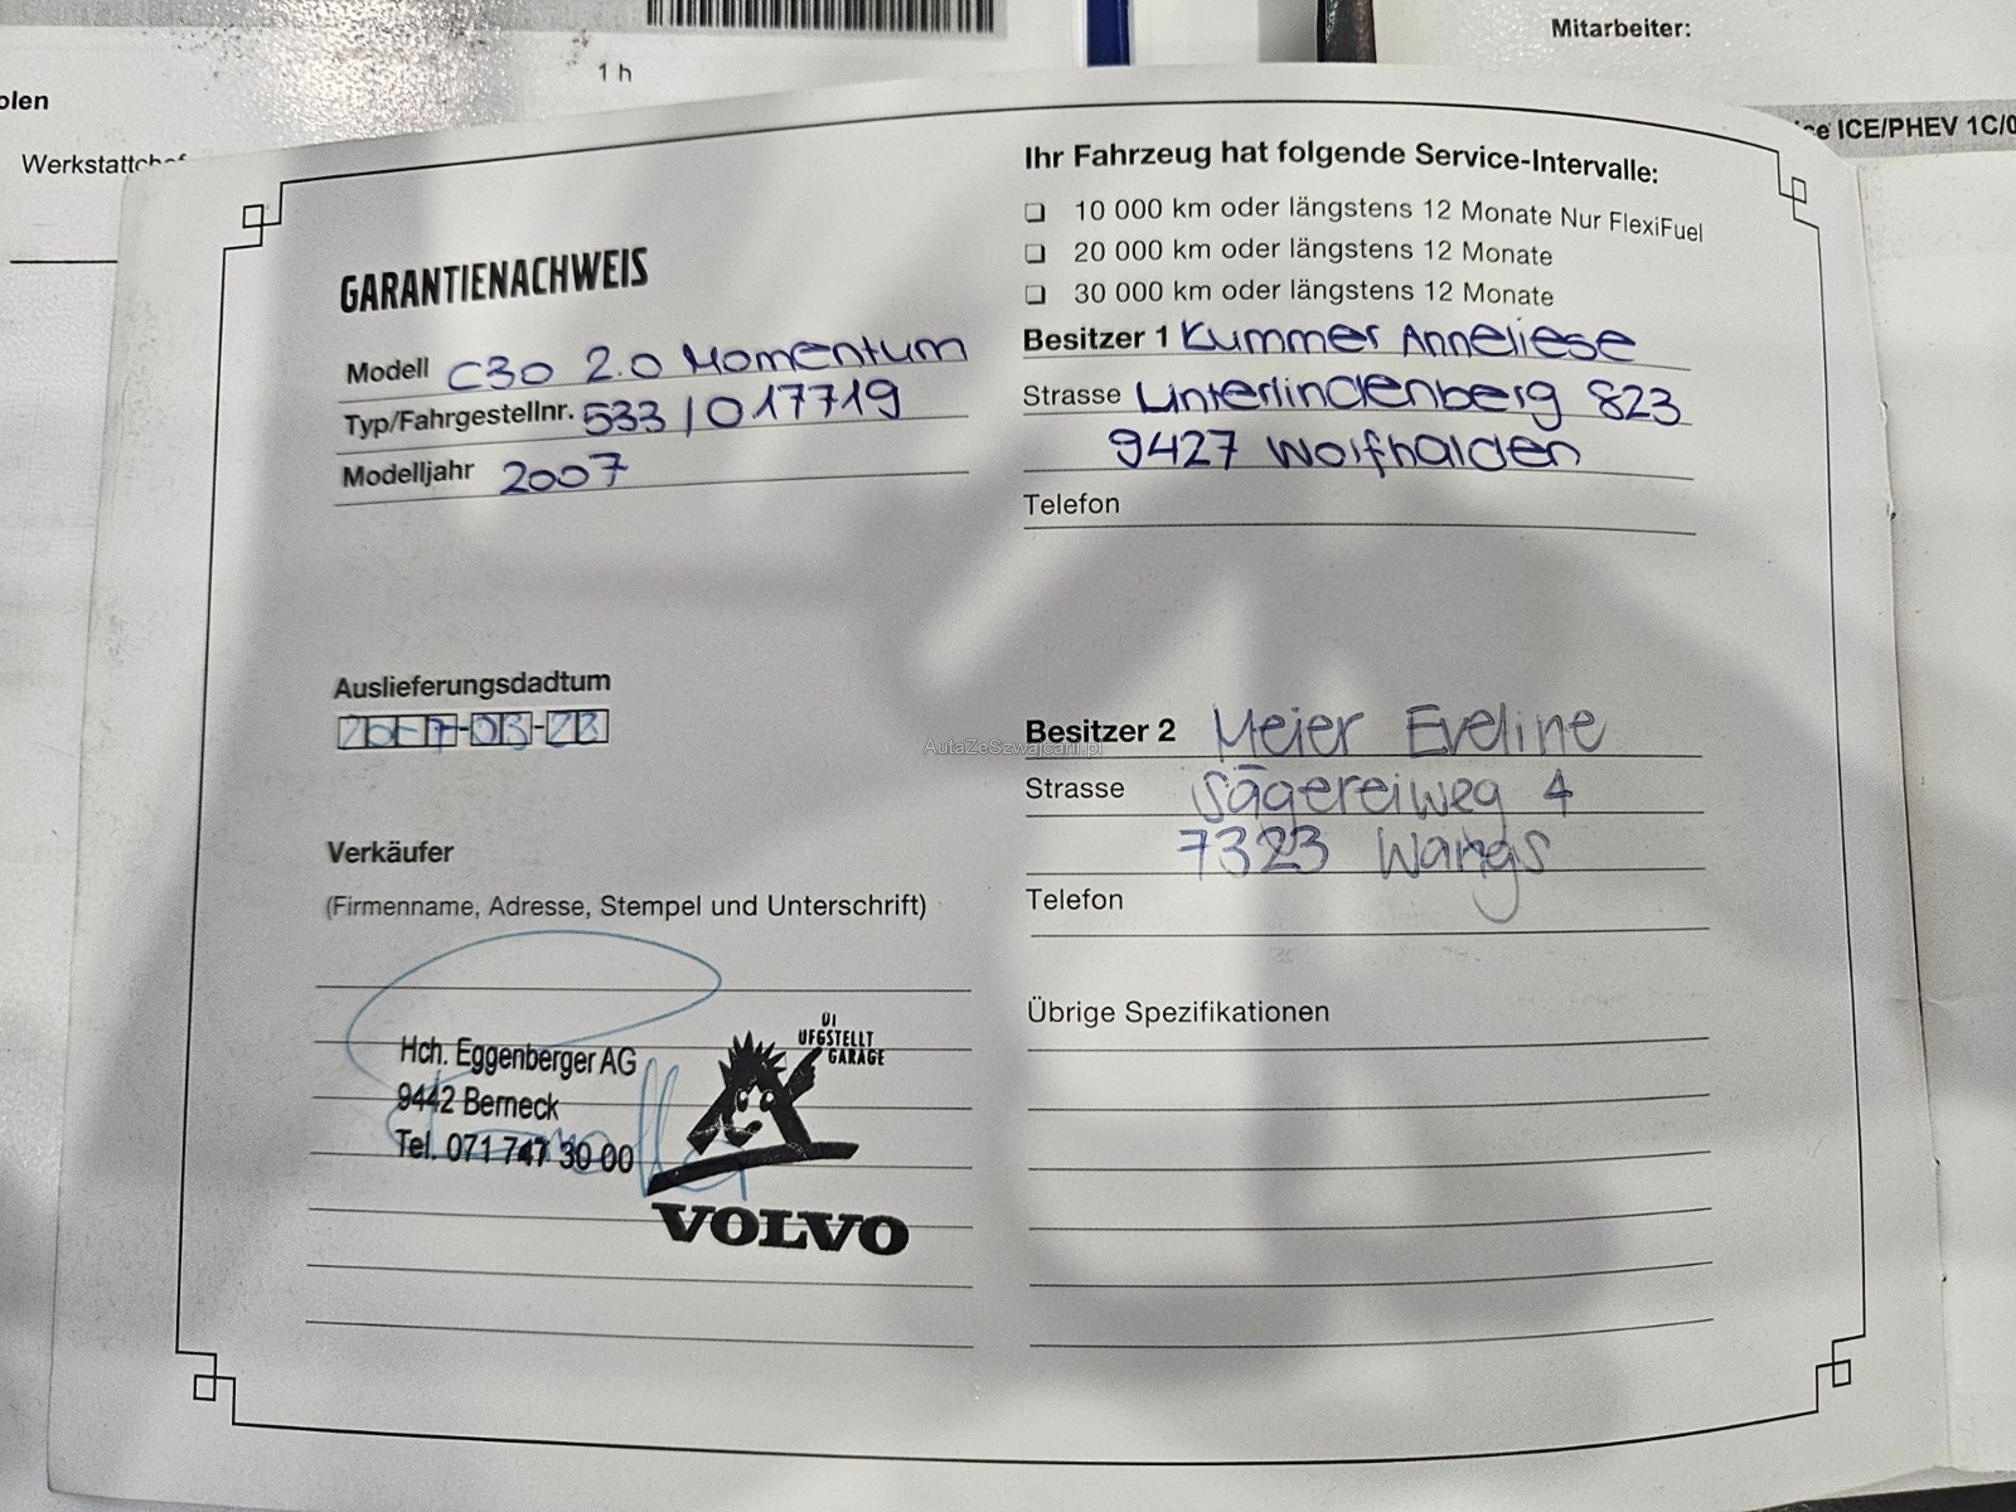 1 h
Mitarbeiter:
olen
ICE/PHEV 1C/0
GARANTIENACHWEIS
Modell C30 2.0 Momentum
Typ/Fahrgestellnr. 533 / 017719
Modelljahr 2007
Auslieferungsdadtum
2007-03-23
Verkäufer
(Firmenname, Adresse, Stempel und Unterschrift)
ÜI
UFGSTELLT
GARAGE
Hch. Eggenberger AG
9442 Berneck
Tel. 071 747 30 00
VOLVO
Ihr Fahrzeug hat folgende Service-Intervalle:
❑ 10 000 km oder längstens 12 Monate Nur FlexiFuel
❑ 20 000 km oder längstens 12 Monate
❑ 30 000 km oder längstens 12 Monate
Besitzer 1 Kummer Anneliese
Strasse Unterlindenberg 823
9427 Wolfhalden
Telefon
Besitzer 2 Meier Eveline
Strasse Sägereiweg 4
7323 Wangs
Telefon
Übrige Spezifikationen
AutaZeSzwajcarii.pl